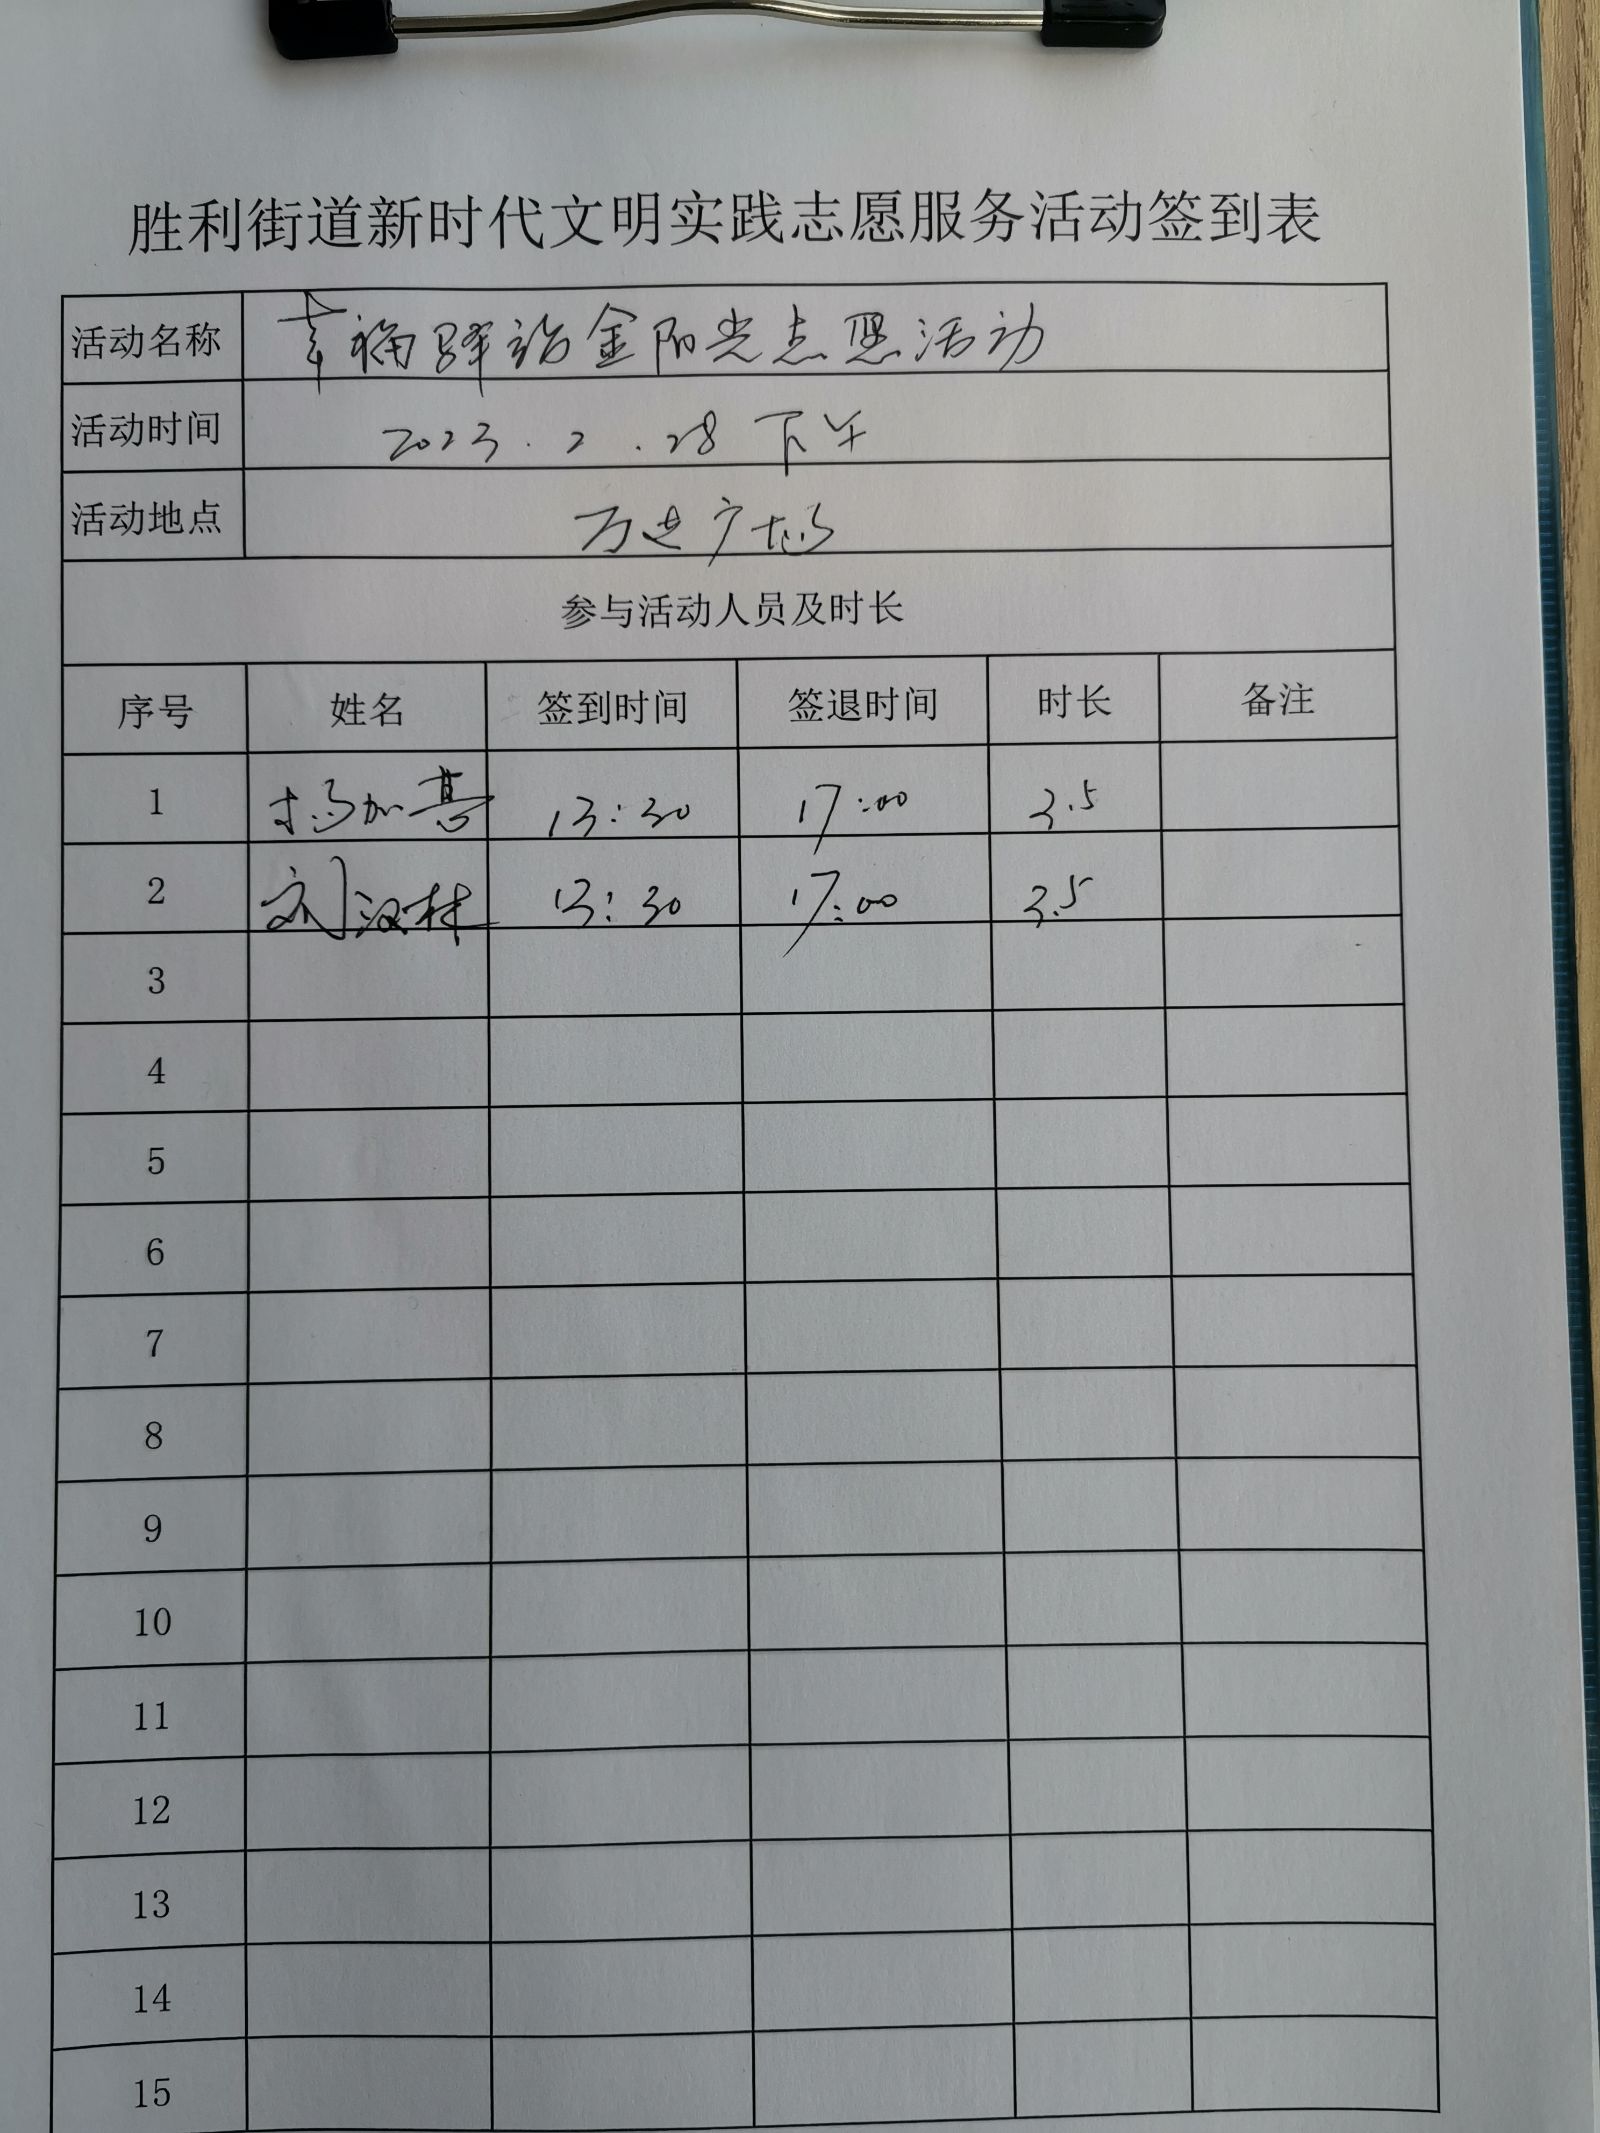 胜利街道新时代文明实践志愿服务活动签到表
活动名称 幸福驿站金阳光志愿活动
活动时间 2023.2.28 下午
活动地点 万达广场
参与活动人员及时长
序号 姓名 签到时间 签退时间 时长 备注
1 杨加 13:30 17:00 3.5
2 刘汉林 13:30 17:00 3.5
3
4
5
6
7
8
9
10
11
12
13
14
15